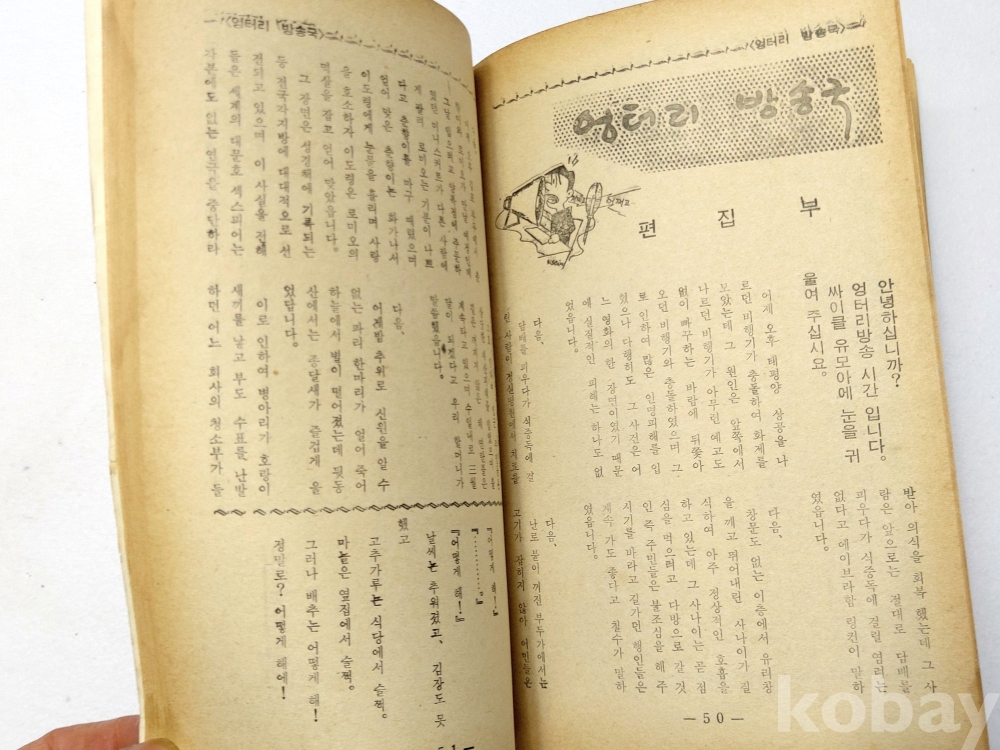 <엉터리 방송국>
엉터리 방송국
편 집 부
안녕하십니까?
엉터리방송 시간 입니다.
싸이클 유모아에 눈을 귀
울여 주십시요.
어제 오후 태평양 상공을 나
르던 비행기가 충돌하여 화제를
모았는데 그 원인은 앞쪽에서
나르던 비행기가 아무런 예고도
없이 빠꾸하는 바람에 뒤쫓아
오던 비행기와 충돌하였으며 그
로 인하여 많은 인명피해를 입
혔으나 다행히도 그 사건은 어
느 영화의 한 장면이었기 때문
에 실질적인 피해는 하나도 없
었읍니다.
다음,
담배를 피우다가 식중독에 걸
린 사람이 정신병원에서 치료를
받아 의식을 회복 했는데 그 사
람은 앞으로는 절대로 담배를
피우다가 식중독에 걸릴 염려는
없다고 에이브라함 링컨이 말하
였읍니다.
다음,
창문도 없는 이층에서 유리창
을 깨고 뛰어내린 사나이가 질
식하여 아주 정상적인 호흡을
하고 있는데 그 사나이는 곧 점
심을 먹으려고 다방으로 갈 것
인즉 주민들은 불조심을 해 주
시기를 바라고 길가던 행인들은
계속 가도 좋다고 철수가 말하
였읍니다.
다음,
난로 불이 꺼진 부두가에서는
고기가 잡히지 않아 어민들은
—50—
<엉터리 방송국>
다고 춘향이를 마구 때렸으며
얻어 맞은 춘향이는 화가나서
이도령에게 눈물을 흘리며 사랑
을 호소하자 이도령은 로미오의
멱살을 잡고 얻어 맞았읍니다.
그 장면은 성경책에 기록되는
등 전국각지방에 대대적으로 선
전되고 있으며 이 사실을 전해
들은 세계의 대문호 섹스피어는
각본에도 없는 연극을 중단하라
말씀했읍니다.
다음,
어제밤 추위로 진원을 알 수
없는 파리 한마리가 얼어 죽어
하늘에서 별이 떨어졌는데 뒷동
산에서는 종달새가 즐겁게 울
었답니다.
이로 인하여 병아리가 호랑이
새끼를 낳고 부도 수표를 난발
하던 어느 회사의 청소부가 들
『어떻게 해!』
『………』
『어떻게 해!』
날씨는 추워졌고, 김장도 못
했고
고추가루는 식당에서 슬쩍.
마늘은 옆집에서 슬쩍.
그러나 배추는 어떻게 해!
정말로? 어떻게 해에!
kobay